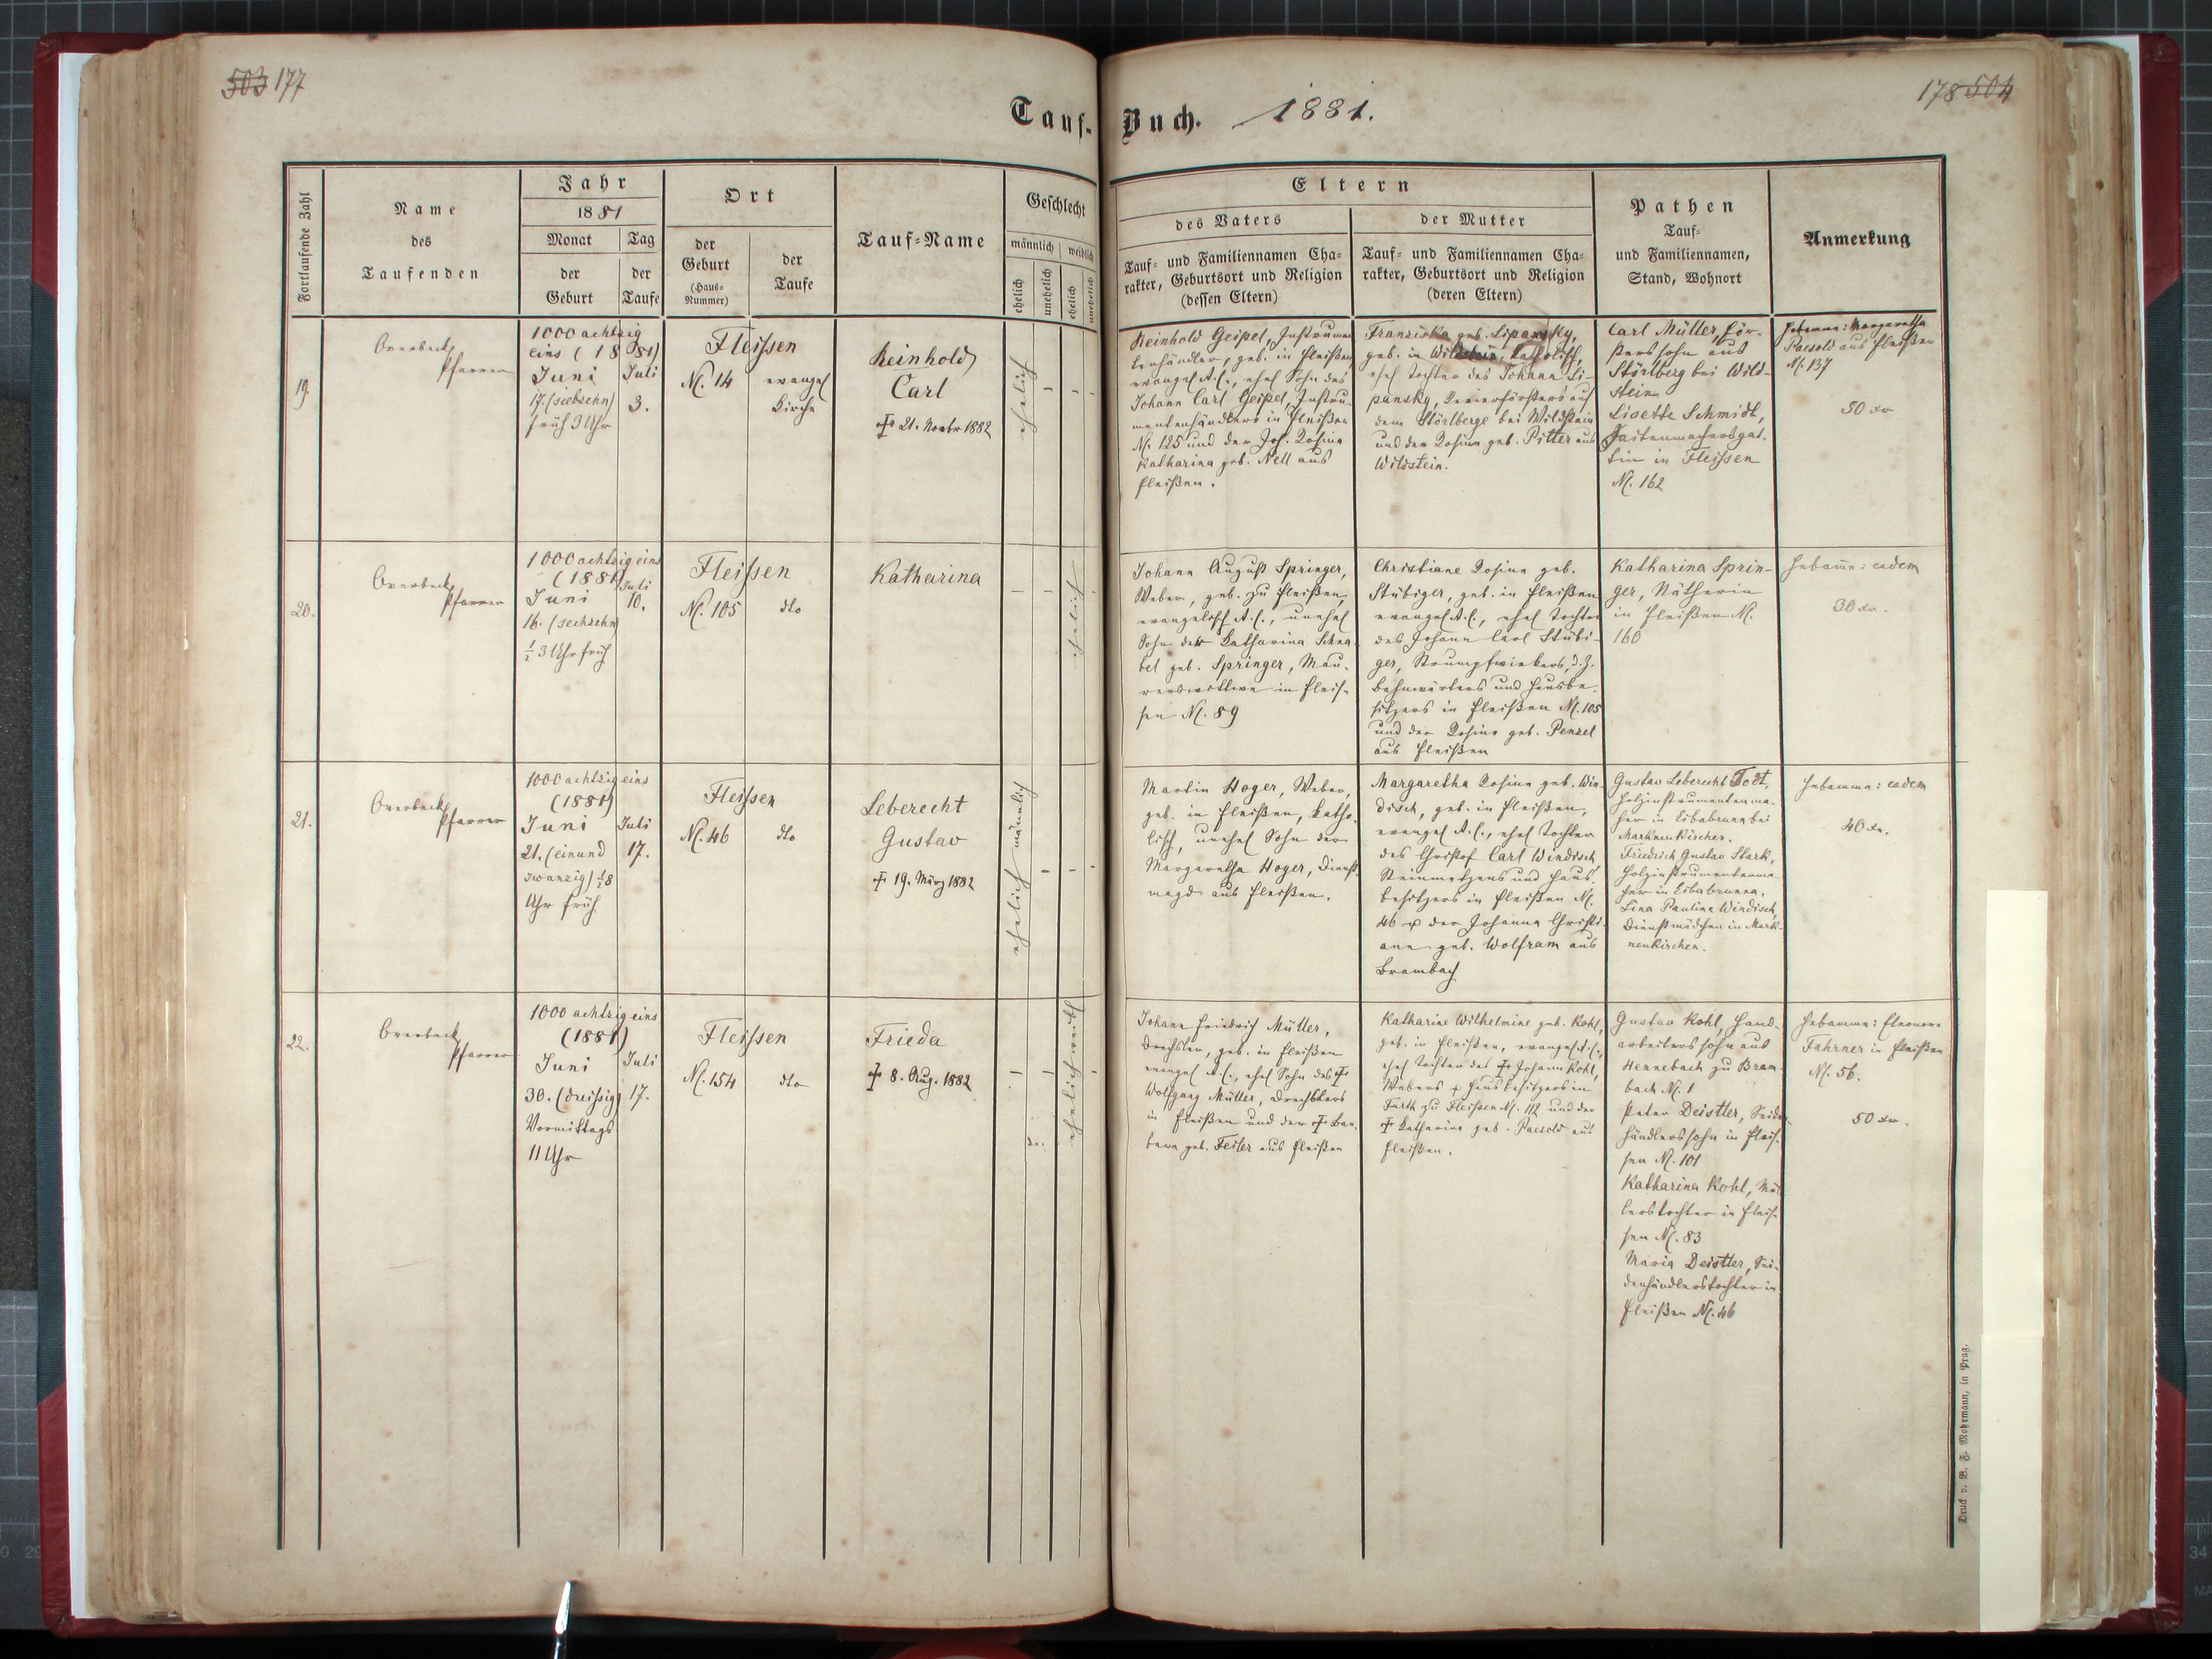 503 177
178 504
Tauf-Buch. 1881.
Fortlaufende Zahl
Name
des
Taufenden
Jahr
1881
Monat
der
Geburt
Tag
der
Taufe
Ort
der
Geburt
(Haus-
Nummer)
der
Taufe
Tauf-Name
Geschlecht
männlich
weiblich
ehelich
unehelich
ehelich
unehelich
Eltern
des Vaters
Tauf- und Familiennamen Cha-
rakter, Geburtsort und Religion
(dessen Eltern)
der Mutter
Tauf- und Familiennamen Cha-
rakter, Geburtsort und Religion
(deren Eltern)
Pathen
Tauf-
und Familiennamen,
Stand, Wohnort
Anmerkung
19.
Overbeck
Pfarrer
1000 achtzig
eins (1881)
Juni
17. (siebzehn)
früh 3 Uhr
Juli
3.
Fleissen
N. 14
evangel
Kirche
Reinhold
Carl
† 21. Novbr 1882
ehelich
Reinhold Geipel, Instrumen
tenhändler, geb. in Fleißen,
evangel A.C., ehel Sohn des
Johann Carl Geipel, Instru-
mentenhändlers in Fleißen
N. 125 und der Joh. Rosina
Katharina geb. Nell aus
Fleißen.
Franziska geb. Lipansky,
geb. in Wildstein, katholisch,
ehel Tochter des Johann Li-
pansky, Revierförsters auf
dem Störlberge bei Wildstein
und der Rosina geb. Pitter aus
Wildstein.
Carl Müller, För-
sterssohn aus
Störlberg bei Wild-
stein
Lisette Schmidt,
Saitenmachersgat-
tin in Fleissen
N. 162
Hebamme: Margaretha
Paesold aus Fleißen
N. 137
50 xr
20.
Overbeck
Pfarrer
1000 achtzig eins
(1881)
Juni
16. (sechzehn)
½ 3 Uhr früh
Juli
10.
Fleissen
N. 105
dto
Katharina
ehelich
Johann August Springer,
Weber, geb. zu Fleißen,
evangelisch A.C., unehel
Sohn der Katharina Schna-
bel geb. Springer, Mau-
rerswittwe in Fleis-
sen N. 89
Christiane Rosina geb.
Stübiger, geb. in Fleißen
evangel A.C., ehel Tochter
des Johann Carl Stübi-
ger, Strumpfwirkers, d.Z.
Bahnwärters und Hausbe-
sitzers in Fleißen N. 105
und der Rosina geb. Penzel
aus Fleißen
Katharina Sprin-
ger, Nätherin
in Fleißen N.
160
Hebamme: eadem
30 xr.
21.
Overbeck
Pfarrer
1000 achtzig eins
(1881)
Juni
21. (einund
zwanzig) ½ 8
Uhr früh
Juli
17.
Fleissen
N. 46
dto
Leberecht
Gustav
† 19. März 1882
ehelich männlich
Martin Hoger, Weber,
geb. in Fleißen, katho-
lisch, unehel Sohn der
Margaretha Hoger, Dienst-
magd aus Fleißen.
Margaretha Rosina geb. Win
disch, geb. in Fleißen,
evangel A.C., ehel Tochter
des Christof Carl Windisch,
Steinmetzens und Haus-
besitzers in Fleißen N.
46 u der Johanna Christi-
ane geb. Wolfram aus
Brambach
Gustav Leberecht Todt,
Holzinstrumentenma-
cher in Erbabrunn bei
Markneukirchen.
Friedrich Gustav Stark,
Holzinstrumentenma-
cher in Erbabrunn.
Lina Pauline Windisch,
Dienstmädchen in Mark-
neukirchen.
Hebamme: eadem
40 xr.
22.
Overbeck
Pfarrer
1000 achtzig eins
(1881)
Juni
30. (dreissig)
Vormittags
11 Uhr
Juli
17.
Fleissen
N. 154
dto
Frieda
† 8. Aug. 1882
ehelich weibl
Johann Friedrich Müller,
Drechsler, geb. in Fleißen
evangel A.C., ehel Sohn des †
Wolfgang Müller, Drechslers
in Fleißen und der † Bar-
bara geb. Feiler aus Fleißen
Katharine Wilhelmine geb. Kohl,
geb. in Fleißen, evangel. A.C.,
ehel Tochter des † Johann Kohl,
Webers u Hausbesitzers in
Furth zu Fleißen N. 112 und der
† Katharina geb. Paesold aus
Fleißen.
Gustav Kohl, Hand-
arbeiterssohn aus
Hennebach zu Bram-
bach N. 1
Peter Deistler, Seiden
händlerssohn in Fleis-
sen N. 101
Katharina Kohl, Mül
lerstochter in Fleis-
sen N. 83
Maria Deistler, Sei-
denhändlerstochter in
Fleißen N. 46
Hebamme: Eleonore
Fahrner in Fleißen
N. 56.
50 xr.
Druck v. B. F. Mohrmann, in Prag.